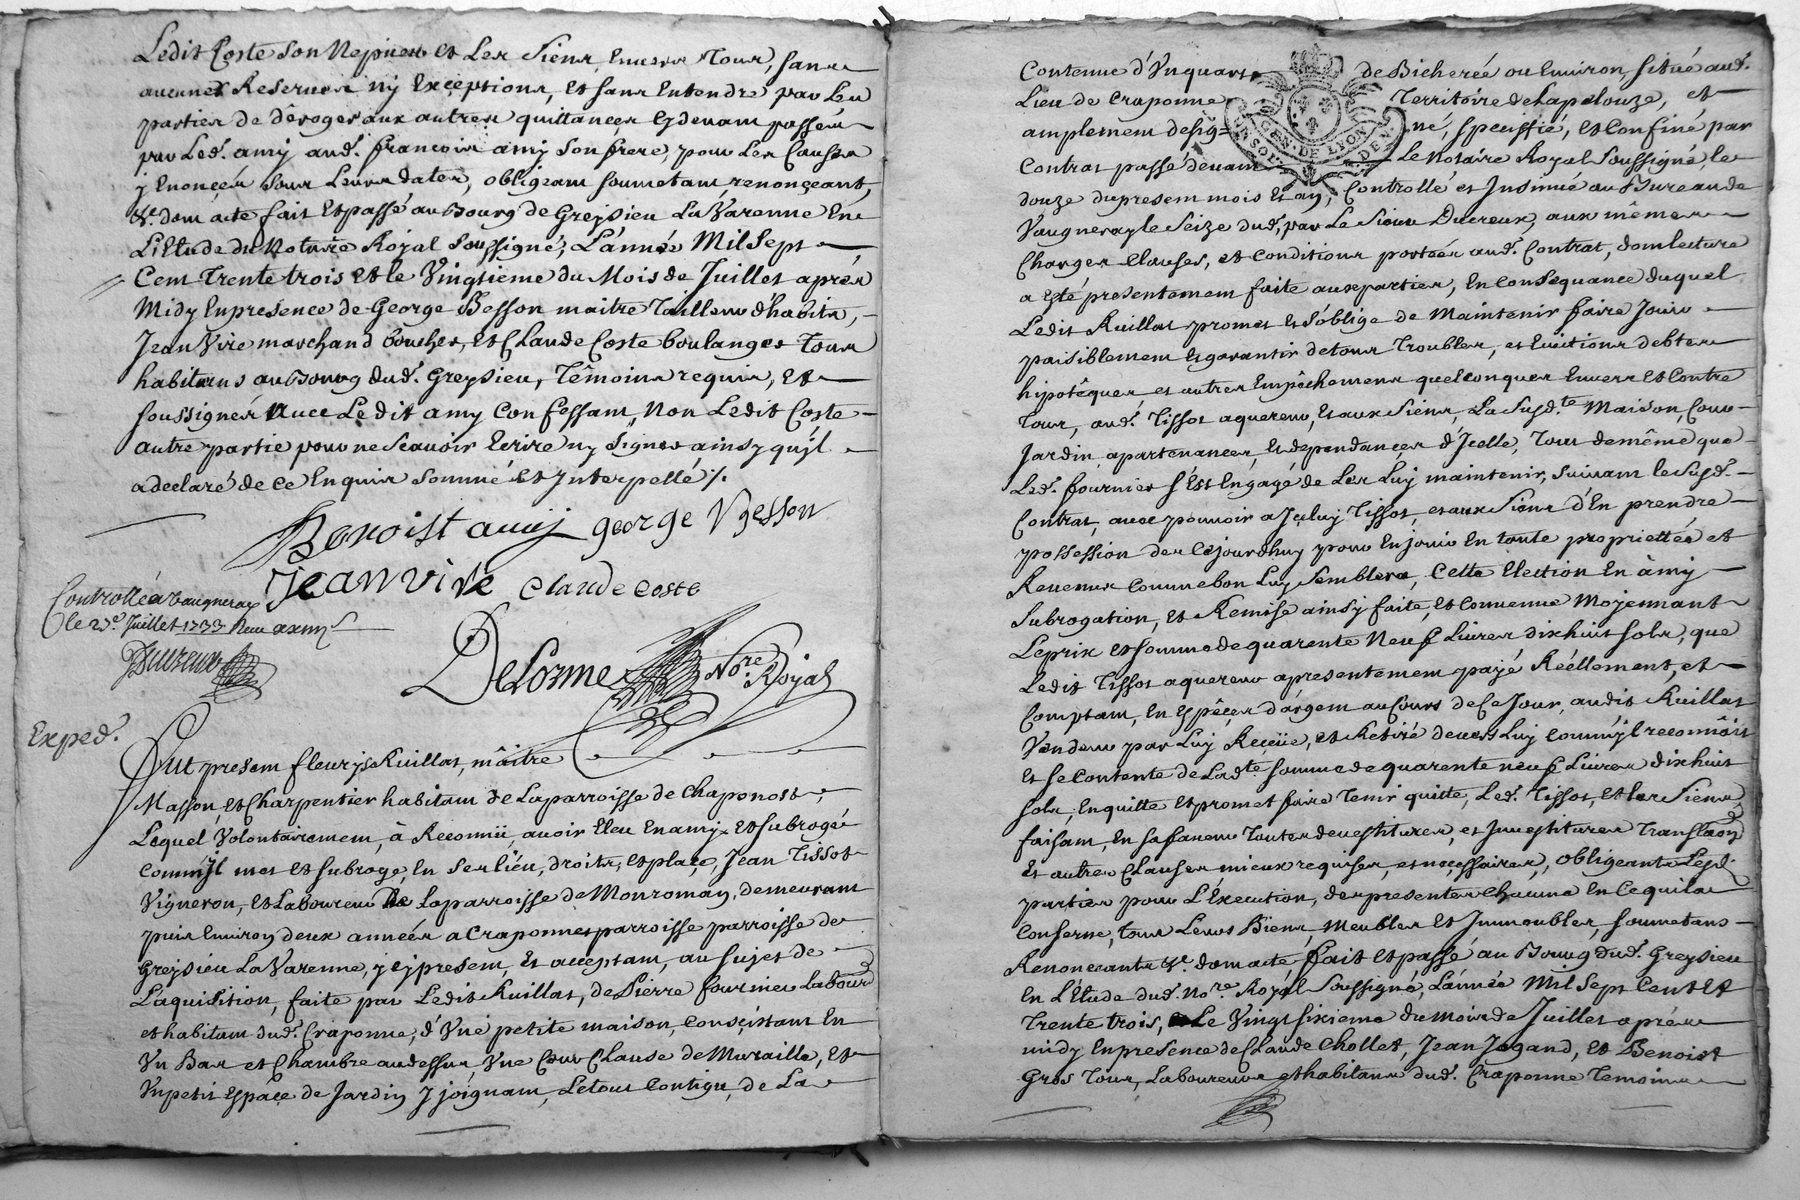 Ledit Coste son Nepueu et Les Siens, Envers Tous, sans
aucunes Reserves ny Exceptions, et sans Entendre par Les
parties de déroger aux autres quittances cydevant passées
par Led. amy aud. françois amy son frere, pour Les Causes
y Enoncées sous Leurs dates, obligeant soumetant, renonçeant,
&c. dont acte fait et passé au Bourg de Greysieu La Varenne En
L'Etude du Notaire Royal soussigné, L'année Mil sept
Cent Trente trois et le Vingtieme du Mois de Juillet après
Midy En presence de George Besson maitre Tailleur d'habits,
Jean Vire marchand boucher, et Claude Coste boulanger Tous
habitans au Bourg dud. Greysieu, Têmoins requis, et
soussignés auec Ledit amy Confessant, Non Ledit Coste
autre partie pour ne Scauoir Ecrire ny Signer ainsy qu'jl
a declaré de ce Enquis sommé et Interpellé ./.
Benoist amy george Besson
Jean vire Claude coste
Controllé a Vaugneray
le 23e Juillet 1733 Reçu
Ducreux
Delorme Nore. Royal
Exped.
Fut present fleurys Ruillat, mâitre
Masson, et Charpentier habitant de La parroisse de Chaponost,
Lequel Volontairement, à Reconnü auoir Eleu En amy et subrogé
comm'jl met et subroge, En ses lieu, droits, et plaçe, Jean Tissot
Vigneron, et Laboureur de La parroisse de Monroman, demeurant
puis Enuiron deux années a Craponne parroisse parroisse de
Greysieu La Varenne, jcy present, et acceptant, au sujet de
L'aquisition, faite par Ledit Ruillat, de Pierre fournier Labour
et habitant dud. Craponne, d'Vne petite maison, consistant En
Vn Bas et Chambre au dessus, Vne Cour Clause de Muraille, et
Vn petit Espáce de Jardin y joignant, Le tout Contigu, de La
Contenue d'Vn quart de Bicherée ou Enuiron, situé aud.
Lieu de Craponne Territoire de Lapelouze, et
GEN. DE LYON
amplement desig=né, speciffié, et Confiné par
Contrat passé deuant Le Notaire Royal soussigné, le
douze du present mois et an, Controllé et Insinué au Bureau de
Vaugneray le Seize dud., par Le Sieur Ducreux, aux mêmes
Charges Clauses, et Conditions portées aud. Contrat, dont lecture
a Esté presentement faite aux parties, En Consequance duquel
Ledit Ruillat promet et s'oblige de Maintenir faire Jouir
paisiblement et garantir de tous Troubles, et Euictions debtes
hipotêques, et autres Empêchements quelconques Enuers et Contre
Tous, aud. Tissot aquereur, et aux Siens, La Susd.te Maison, Cour
Jardin, apartenances, et dependances d'Jcelle, Tout de même que
Led. fournier s'Est Engagé de Les Luy maintenir, suivant le Susd.
Contrat, auec pouuoir a Jceluy Tissot, et aux Siens d'En prendre
possession des Cejourdhuy pour En jouir En toute propriettée et
Revenus comme bon Luy Semblera, Cette Election En àmy
Subrogation, et Remise ainsy faite, et Conuenue Moyennant
Le prix et somme de quarente Neuf Liures dix huit sols, que
Ledit Tissot aquereur a presentement payé Réellement, et
Comptant, En Espêçes d'argent au Cours de Ce Jour, audit Ruillat
Vendeur par Luy Reçeüe, et Retiré deuers Luy comm'jl reconnôit
et se Contente de Lad.te somme de quarente neuf Liures dix huit
sols, En quitte et promet faire Tenir quitte, Led. Tissot, et les Siens,
faisant, En sa faueur Toutes deuestitures, et Inuestitures Translaôn
et autres Clauses mieux requises, et neçessaires, obligeants Lesd.
parties pour L'Execution, des presentes Chacune En Ce qui La
Conserne, tous Leurs Biens, Meubles et Immeubles, soumetans
Renonceants &c. dont acte, fait et passé au Bourg dud. Greysieu
En L'Etude dud. Nore. Royal Soussigné, L'année Mil Sept Cent et
Trente trois, Le Vingt sixieme du mois de Juillet après
midy En presence de Claude Chollet, Jean Jogand, et Benoist
Gros Tous, Laboureurs et habitans dud. Craponne Temoins